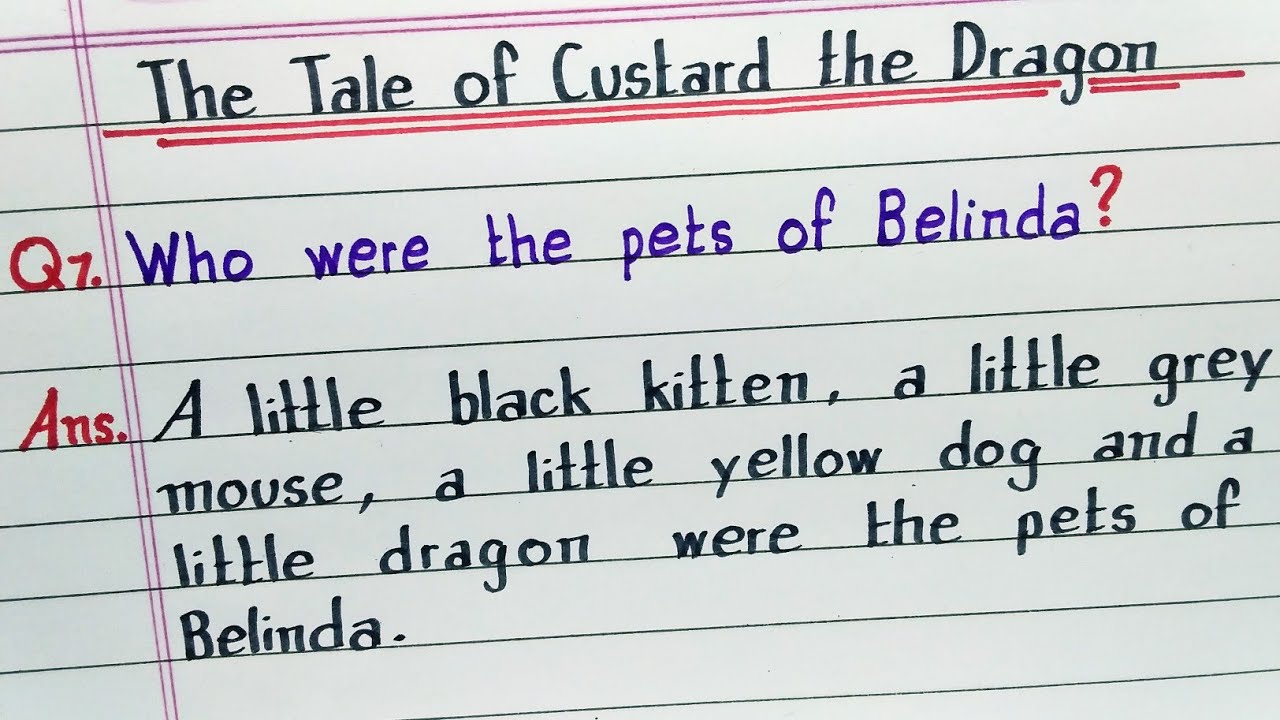 The Tale of Custard the Dragon
Q1. Who were the pets of Belinda?
Ans. A little black kitten, a little grey
mouse, a little yellow dog and a
little dragon were the pets of
Belinda.